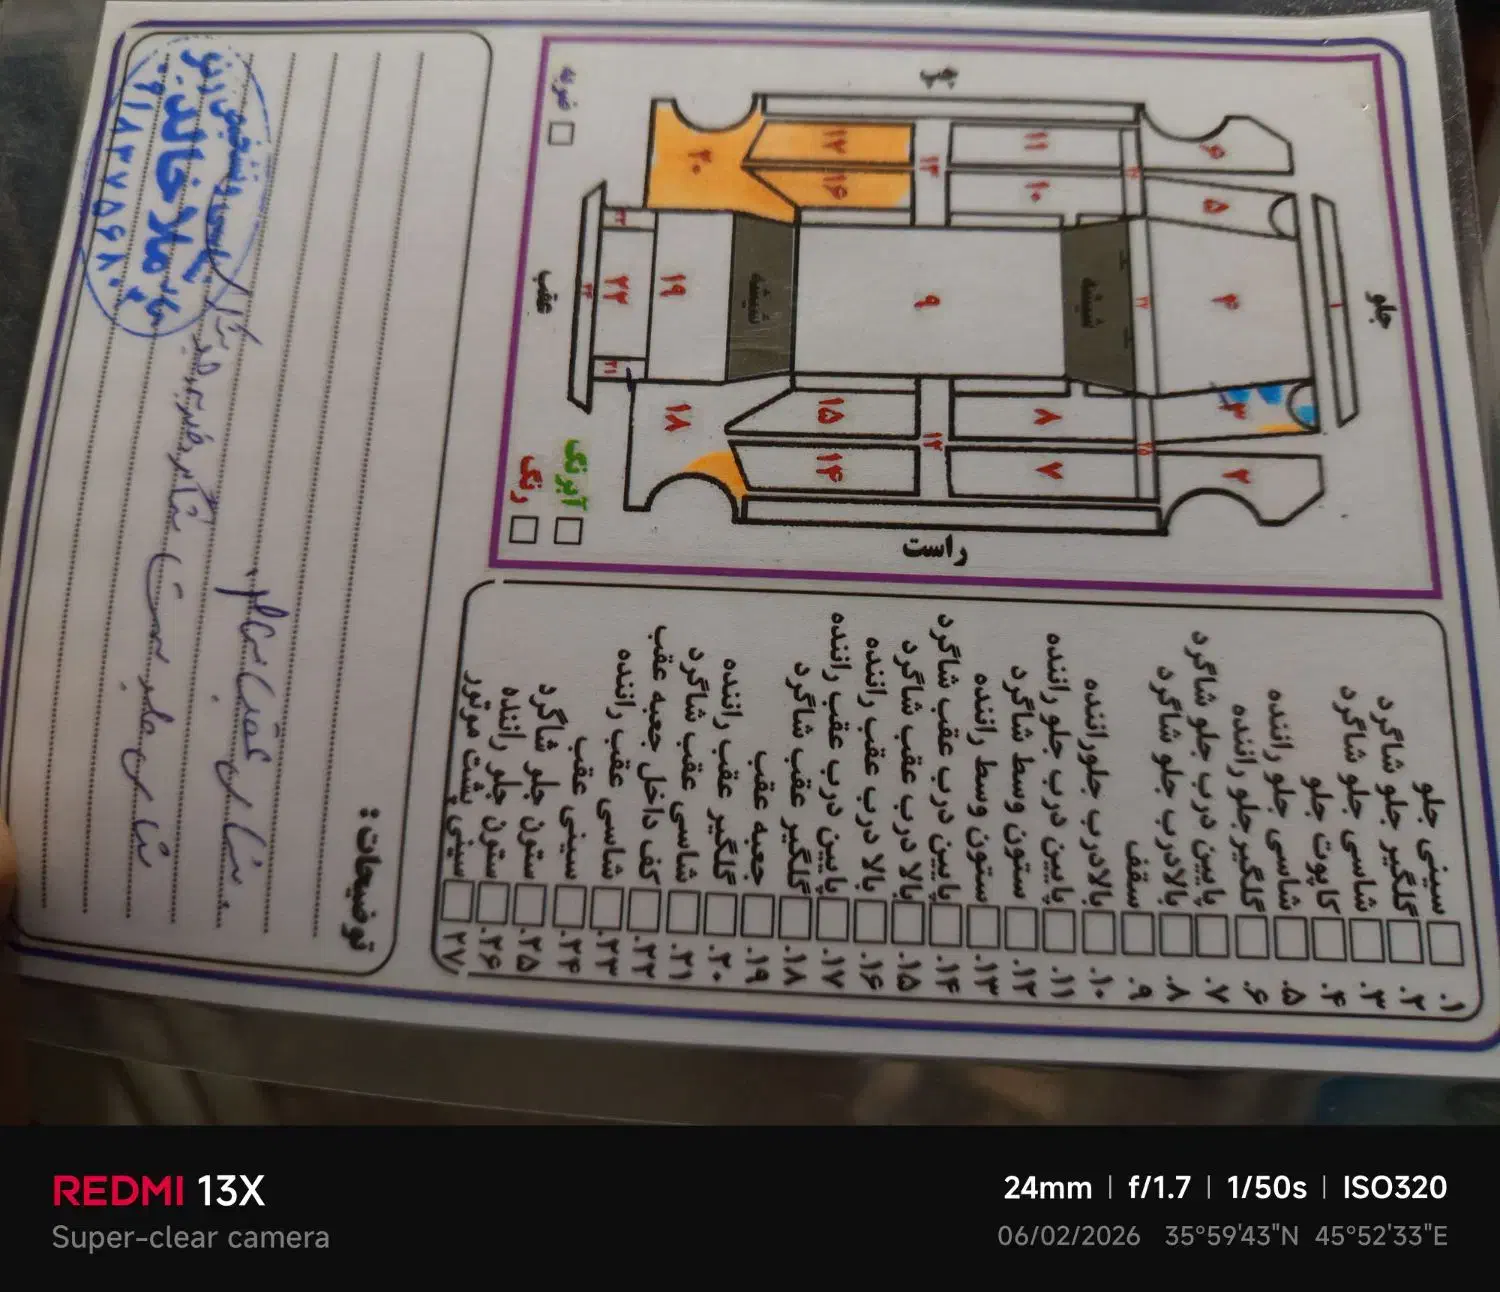 چپ
ضربه
جلو
عقب
راست
آبرنگ
رنگ
شیشه
شیشه
۱
۲
۳
۴
۵
۶
۷
۸
۹
۱۰
۱۱
۱۲
۱۳
۱۴
۱۵
۱۶
۱۷
۱۸
۱۹
۲۰
۲۱
۲۲
۲۳
۲۴
۲۵
۲۶
۲۷
۱. سینی جلو
۲. گلگیر جلو شاگرد
۳. شاسی جلو شاگرد
۴. کاپوت جلو
۵. شاسی جلو راننده
۶. گلگیر جلو راننده
۷. پایین درب جلو شاگرد
۸. بالادرب جلو شاگرد
۹. سقف
۱۰. بالادرب جلوراننده
۱۱. پایین درب جلو راننده
۱۲. ستون وسط شاگرد
۱۳. ستون وسط راننده
۱۴. پایین درب عقب شاگرد
۱۵. بالا درب عقب شاگرد
۱۶. بالا درب عقب راننده
۱۷. پایین درب عقب راننده
۱۸. گلگیر عقب شاگرد
۱۹. جعبه عقب
۲۰. گلگیر عقب راننده
۲۱. شاسی عقب شاگرد
۲۲. کف داخل جعبه عقب
۲۳. شاسی عقب راننده
۲۴. سینی عقب
۲۵. ستون جلو شاگرد
۲۶. ستون جلو راننده
۲۷. سینی پشت موتور
توضیحات:
شاسی عقب سالم
شاسی جلو سمت شاگرد ضربه
خالد ملاخالد
REDMI 13X
Super-clear camera
24mm | f/1.7 | 1/50s | ISO320
06/02/2026 35°59'43"N 45°52'33"E